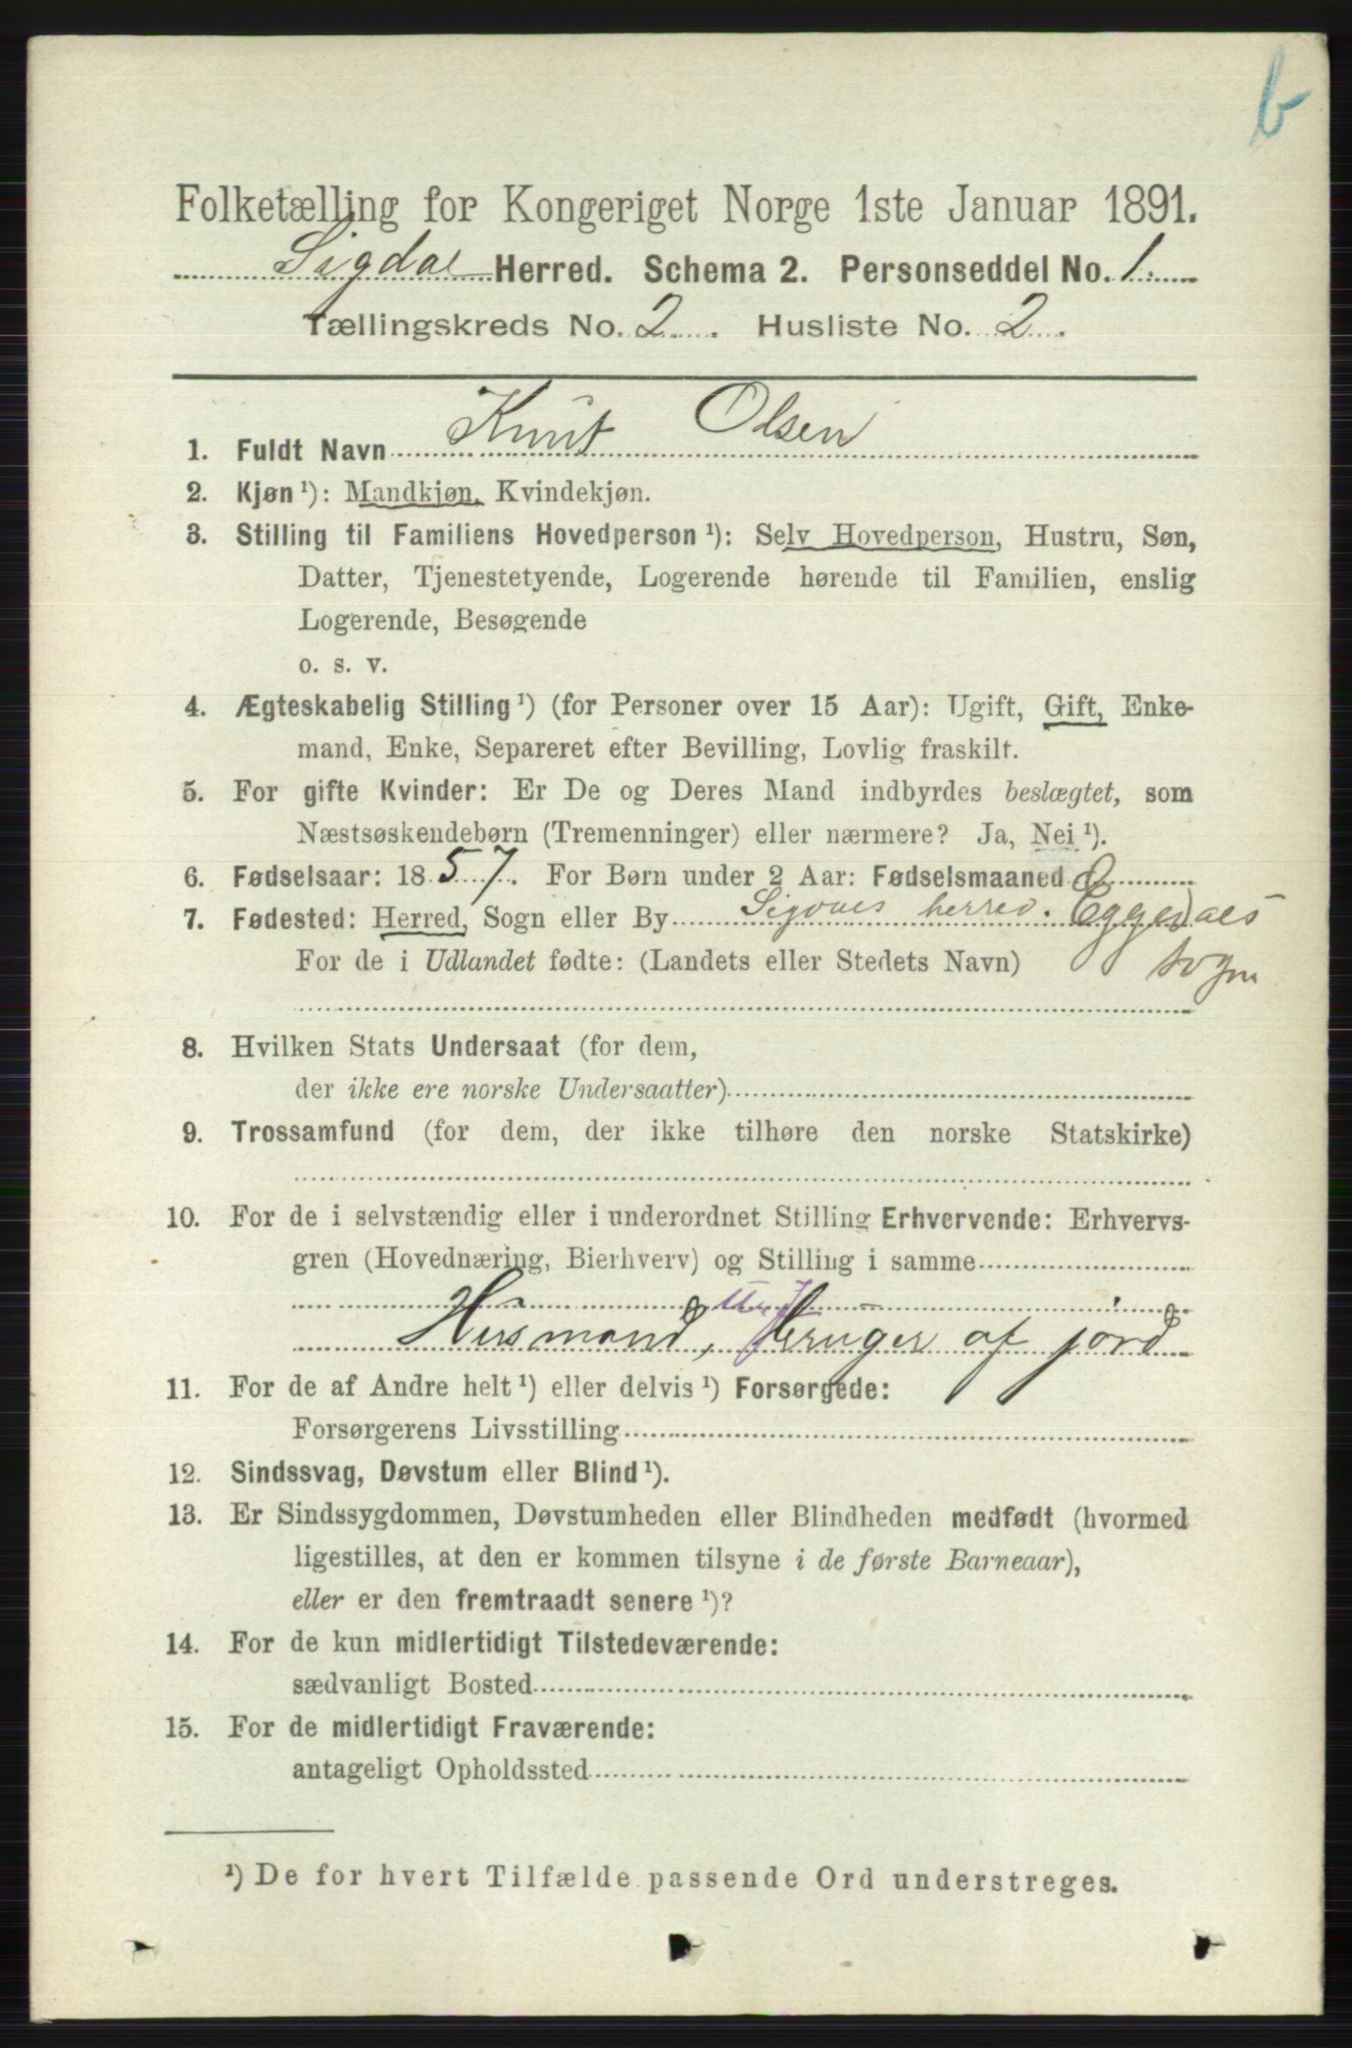 b
Folketælling for Kongeriget Norge 1ste Januar 1891.
Sigdal Herred. Schema 2. Personseddel No. 1.
Tællingskreds No. 2. Husliste No. 2.
1. Fuldt Navn Knut Olsen
2. Kjøn ¹): Mandkjøn, Kvindekjøn.
3. Stilling til Familiens Hovedperson ¹): Selv Hovedperson, Hustru, Søn,
Datter, Tjenestetyende, Logerende hørende til Familien, enslig
Logerende, Besøgende
o. s. v.
4. Ægteskabelig Stilling ¹) (for Personer over 15 Aar): Ugift, Gift, Enke-
mand, Enke, Separeret efter Bevilling, Lovlig fraskilt.
5. For gifte Kvinder: Er De og Deres Mand indbyrdes beslægtet, som
Næstsøskendebørn (Tremenninger) eller nærmere? Ja, Nei ¹).
6. Fødselsaar: 1857. For Børn under 2 Aar: Fødselsmaaned
7. Fødested: Herred, Sogn eller By Sigdals herred. Eggedals
For de i Udlandet fødte: (Landets eller Stedets Navn) sogn
8. Hvilken Stats Undersaat (for dem,
der ikke ere norske Undersaatter)
9. Trossamfund (for dem, der ikke tilhøre den norske Statskirke)
10. For de i selvstændig eller i underordnet Stilling Erhvervende: Erhvervs-
gren (Hovednæring, Bierhverv) og Stilling i samme
Husmand, bruger af jord
11. For de af Andre helt ¹) eller delvis ¹) Forsørgede:
Forsørgerens Livsstilling
12. Sindssvag, Døvstum eller Blind ¹).
13. Er Sindssygdommen, Døvstumheden eller Blindheden medfødt (hvormed
ligestilles, at den er kommen tilsyne i de første Barneaar),
eller er den fremtraadt senere ¹)?
14. For de kun midlertidigt Tilstedeværende:
sædvanligt Bosted
15. For de midlertidigt Fraværende:
antageligt Opholdssted
¹) De for hvert Tilfælde passende Ord understreges.